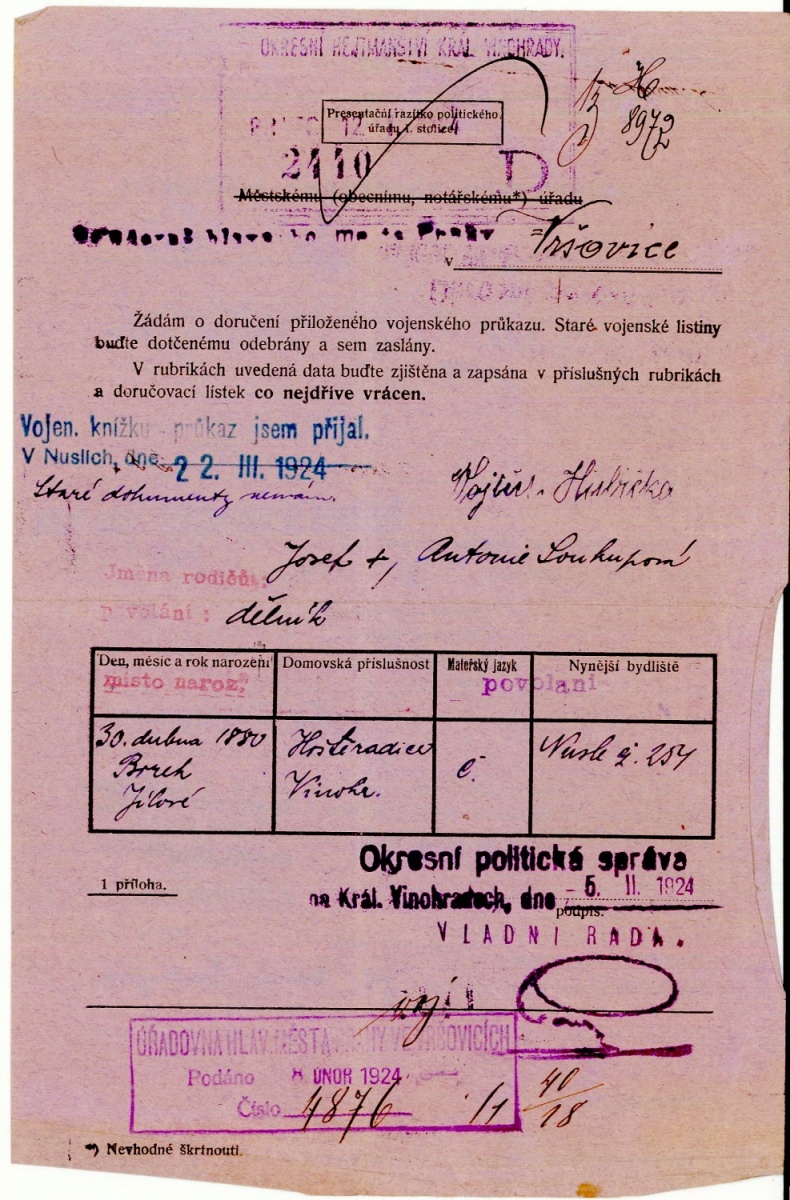 OKRESNÍ HEJTMANSTVÍ KRÁL. VINOHRADY.
8972
Presentační razítko politického
úřadu I. stolice
12
4
2440
D
Městskému (obecnímu, notářskému*) úřadu
v Vršovice
Žádám o doručení přiloženého vojenského průkazu. Staré vojenské listiny
buďte dotčenému odebrány a sem zaslány.
V rubrikách uvedená data buďte zjištěna a zapsána v příslušných rubrikách
a doručovací lístek co nejdříve vrácen.
Vojen. knížku průkaz jsem přijal.
V Nuslích, dne 22. III. 1924
Staré dokumenty nemám.
Josef +, Antonie Soukupová
Jména rodičů:
povolání: dělník
Den, měsíc a rok narození
Domovská příslušnost
Mateřský jazyk
Nynější bydliště
místo naroz.
povolani
30. dubna 1880
Hostěradice
č.
Nusle č. 254
Vinohr.
Jílové
Okresní politická správa
1 příloha.
na Král. Vinohradech, dne - 5. II. 1924
podpis.
VLADNÍ RADA.
ÚŘADOVNA HLAV. MĚSTA PRAHY VE VRŠOVICÍCH
Podáno 8. ÚNOR 1924
Číslo 4876
40
18
*) Nevhodné škrtnouti.